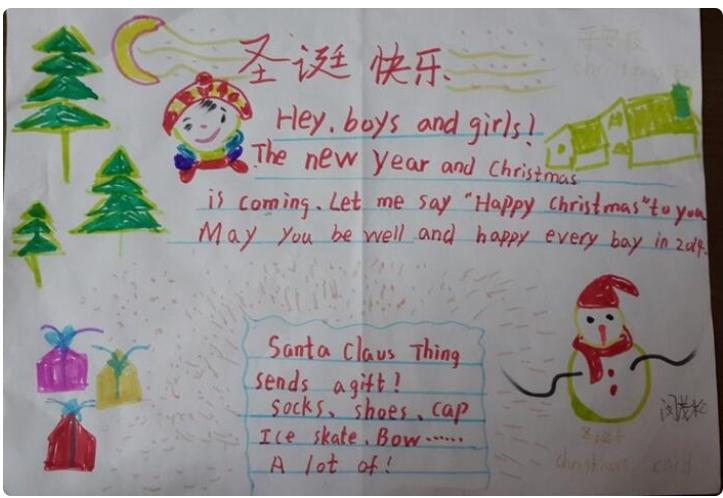 圣诞快乐
平安夜
christmas
Hey, boys and girls!
The new year and christmas
is coming. Let me say "Happy christmas" to you
May you be well and happy every bay in 2014.
Santa Claus Thing
sends a gift!
socks、shoes、cap
Ice skate. Bow……
A lot of!
christmas card